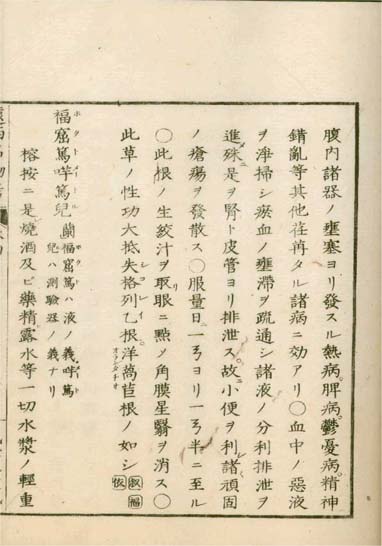 腹內諸器ノ壅塞ヨリ發スル熱病。脾病。鬱憂病。精神
錯亂等其他荏苒タル諸病ニ効アリ〇血中ノ惡液
ヲ淨掃シ瘀血ノ壅滯ヲ疏通シ諸液ノ分利排泄ヲ
進メ殊ニ是ヲ腎ト皮管ヨリ排泄ス。故ニ小便ヲ利シ諸頑固
ノ瘡瘍ヲ發散ス〇服量日ニ一弓ヨリ一弓半ニ至ル
〇此根ノ生絞汁ヲ取リ眼ニ點ノ角膜星翳ヲ消ス〇
此草ノ性功大抵失格列乙根。洋萵苣根ノ如シ 叔福 依
福窟篤哶篤兒 蘭 福窟篤ハ液ノ義哶篤
兒ハ測驗器ノ義ナリ
榕按ニ是燒酒及ビ藥精露水等一切水漿ノ輕重